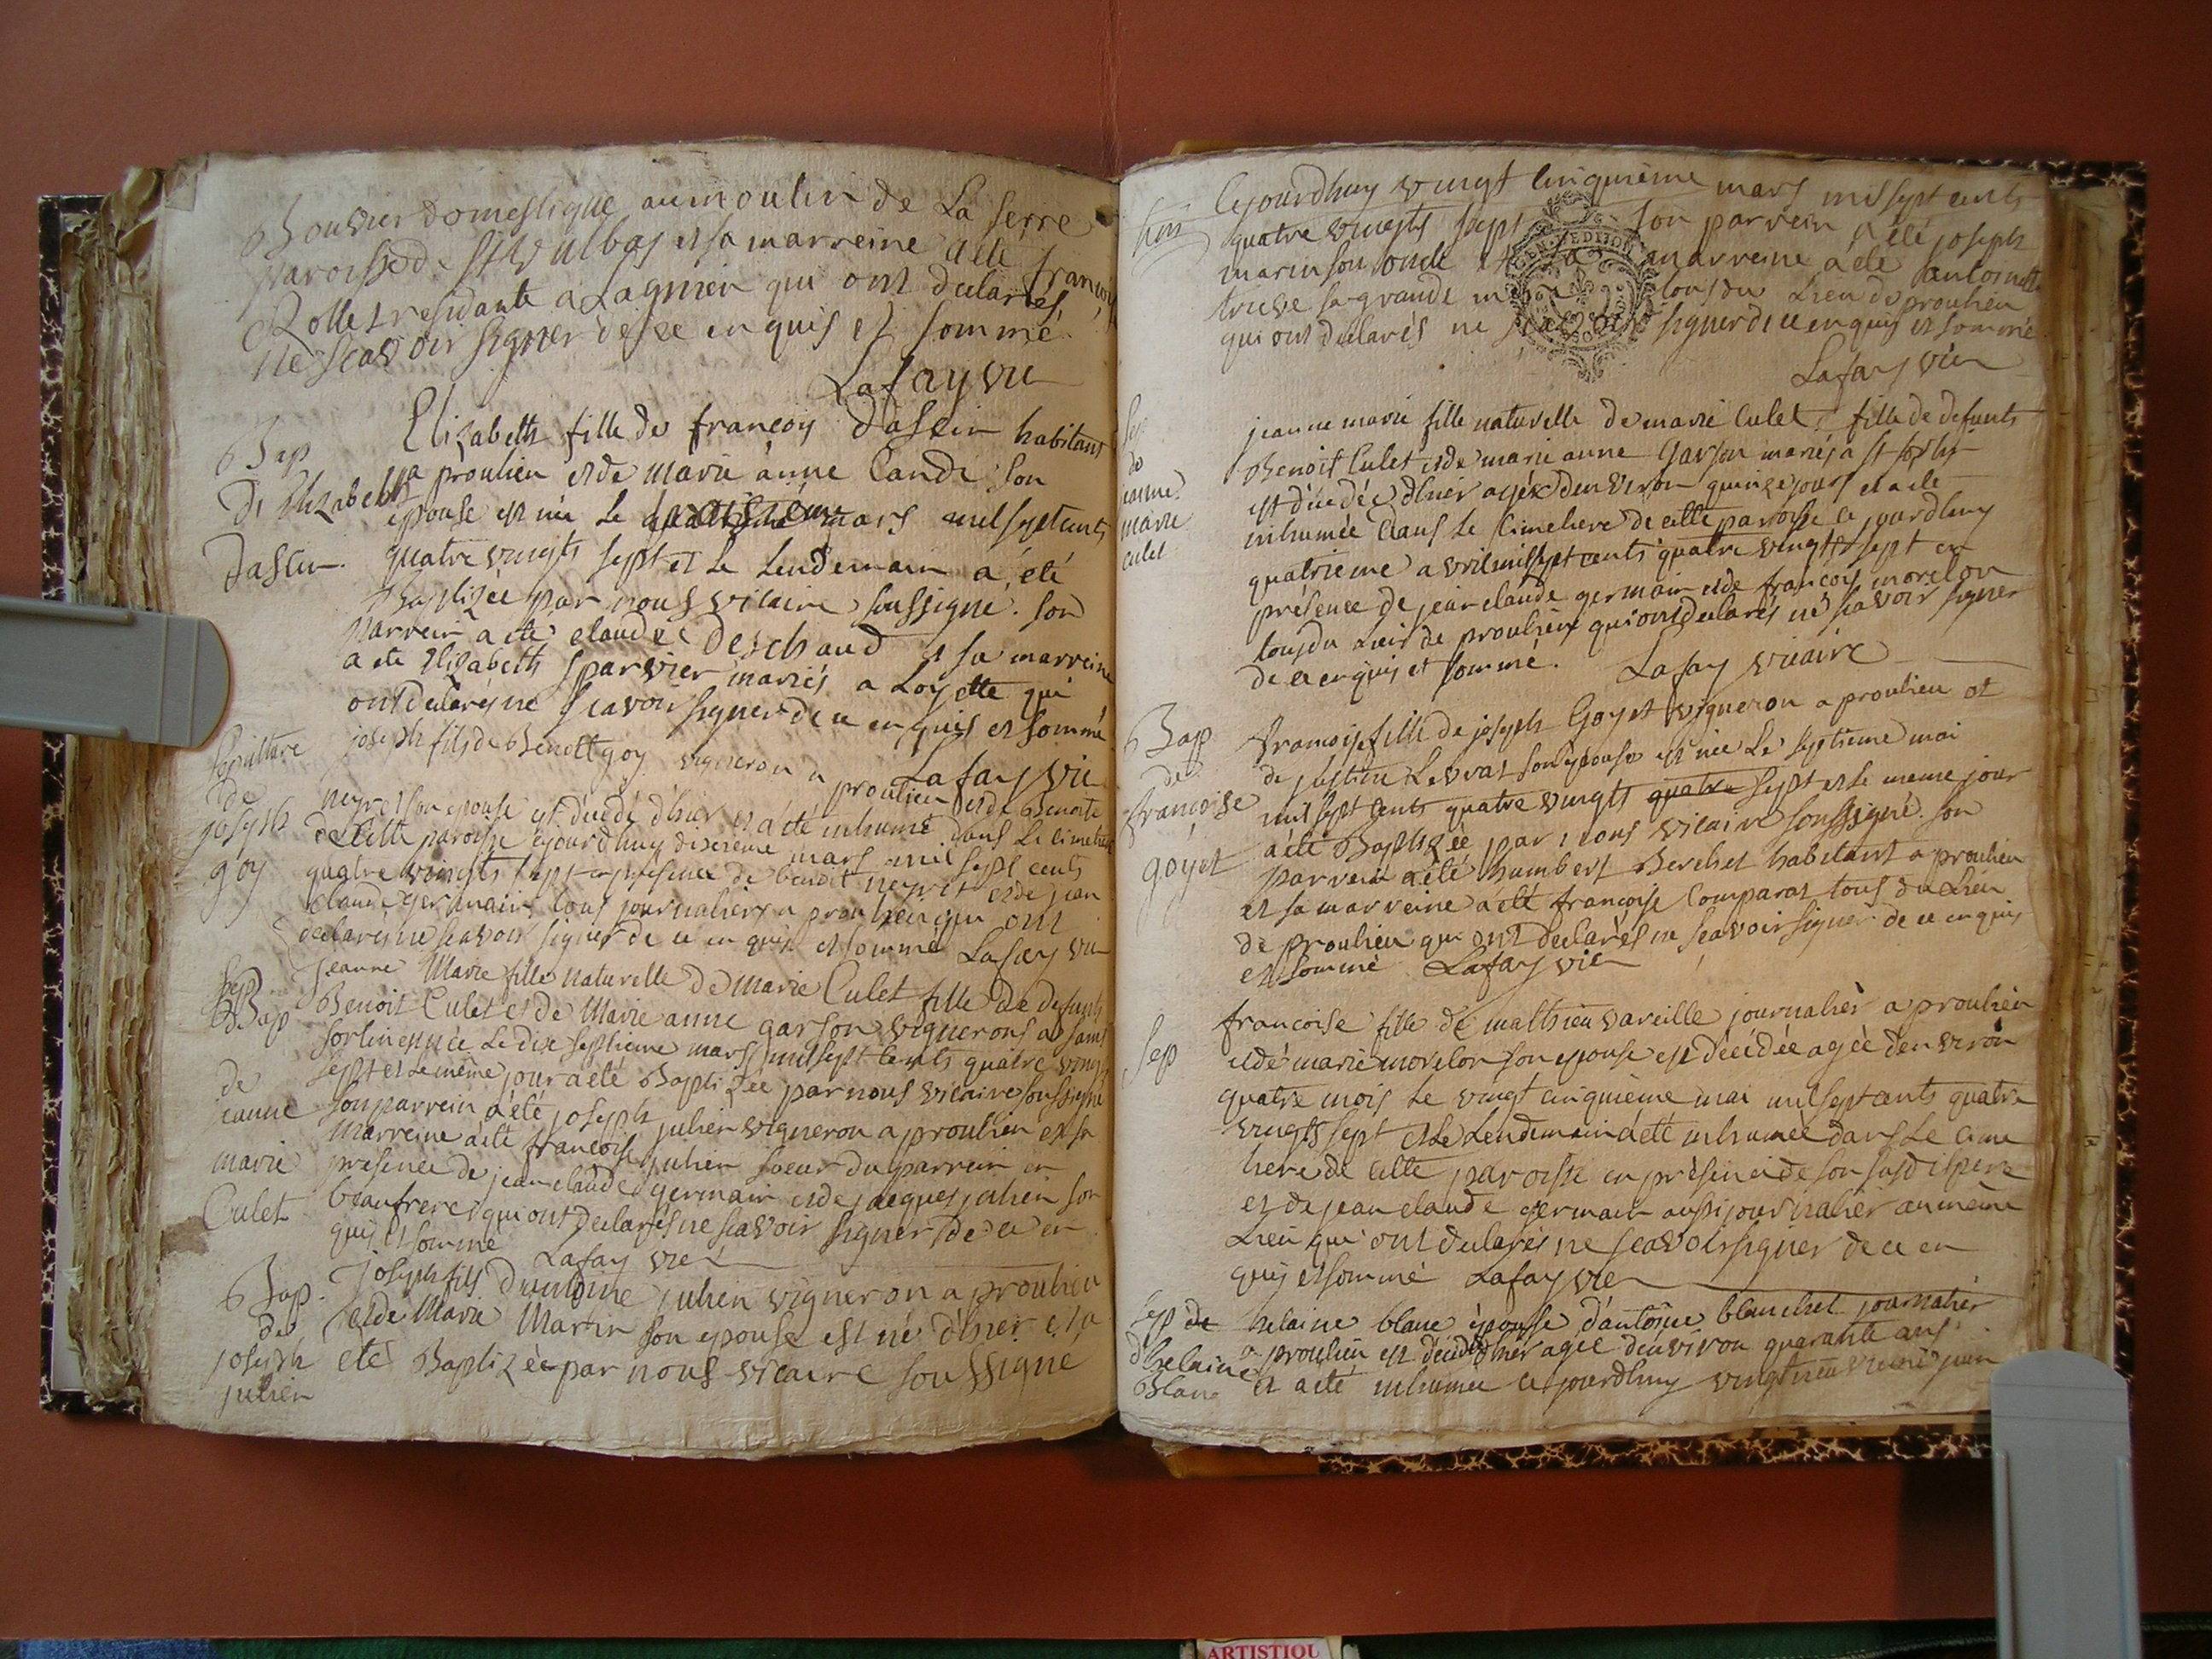 Bouvier domestique au moulin de La serre
paroisse de st Vulbas et sa marreine a été françoise
Rollet residante a Lagnieu qui ont declarés
ne scavoir signer de ce enquis et sommé
Lafay vic
Bap
de Elizabeth
dascin.
Elizabeth fille de françois dascin habitant
a proulieu et de marie anne Cande son
epouse est née le mars mil sept cents
quatre vingts sept et Le Lendemain a été
Baptizée par nous vicaire soussigné. son
parrein a été claude deschaud et sa marreine
a ete Elizabeth sparvier mariés a Loyette qui
ont declarés ne scavoir signer de ce enquis et sommé
Lafay vic
sepulture
de
joseph
goy
joseph fils de Benoit goy vigneron a proulieu et de Benoite
neyret son epouse est décédé d'hier et a été inhumé dans Le cimetiere
de Cette paroisse ajourdhuy dixieme mars mil sept cents
quatre vingts sept en présence de benoit neyret et de jean
claude germain tous journaliers a proulieu qui ont
declarés ne scavoir signer de ce enquis et sommé Lafay vic
Sep
Bap
de
jeanne
marie
Culet
Jeanne Marie fille naturelle de Marie Culet fille de defunts
Benoit Culet et de Marie anne garson vignerons a saint
sorlin est née Le dix septieme mars mil sept cents quatre vingts
sept et Le même jour a été Baptizée par nous vicaire soussigné
son parrein a été joseph julien vigneron a proulieu et sa
marreine a été françoise julien soeur du parrein en
présence de jean claude germain et de jacques julien son
beaufrere qui ont declarés ne scavoir signer de ce en
quis et sommé Lafay vic
Bap.
de
joseph
julien
Joseph fils d'antoine julien vigneron a proulieu
et de Marie Marin son epouse est né d'hier et a
été Baptizée par nous vicaire soussigné
cejourdhuy vingt cinquième mars mil sept cents
quatre vingts sept son parrein a été joseph
marin son oncle et sa marreine a été antoinette
sa grande tous du Lieu de proulieu
qui ont declarés ne scavoir signer de ce enquis et sommé
Lafay vic
Sep
de
jeanne
marie
culet
jeanne marie fille naturelle de marie Culet fille de defunts
Benoit Culet et de marie anne Garson mariés a st sorlin
est décédée d'hier agée denviron quinze jours et a été
inhumée dans Le Cimetiere de cette paroisse ce jourdhuy
quatrieme avril mil sept cents quatre vingts sept en
présence de jean claude germain et de françois morelon
tous du Lieu de proulieu qui ont declarés ne scavoir signer
de ce enquis et sommé. Lafay vicaire
Bap
de
françoise
goyet
françoise fille de joseph Goyet vigneron a proulieu et
de justine Levrat son epouse est née Le septieme mai
mil sept cents quatre vingts quatre sept et le meme jour
a été Baptizée par nous vicaire soussigné. son
parrein a été humbert Berchet habitant a proulieu
et sa marreine a été françoise Comparat tous du Lieu
de proulieu qui ont declarés ne scavoir signer de ce enquis
et sommé Lafay vic
Sep
francoise fille de mathieu vareille journalier a proulieu
et de marie morelon son epouse est décédée agée denviron
quatre mois Le vingt cinquieme mai mil sept cents quatre
vingts sept et Le Lendemain a été inhumée dans Le cime
tiere de Cette paroisse en présence de son susdit pere
et de jean claude germain aussi journalier au même
Lieu qui ont declarés ne scavoir signer de ce en
quis et sommé Lafay vic
Sep de
d'helaine
Blanc
helaine blanc épouse d'antoine blanchet journalier
a proulieu est décédée d'hier agée denviron quarante ans
et a été inhumée ce jourdhuy vingt neuvieme juin
ARTISTIQU